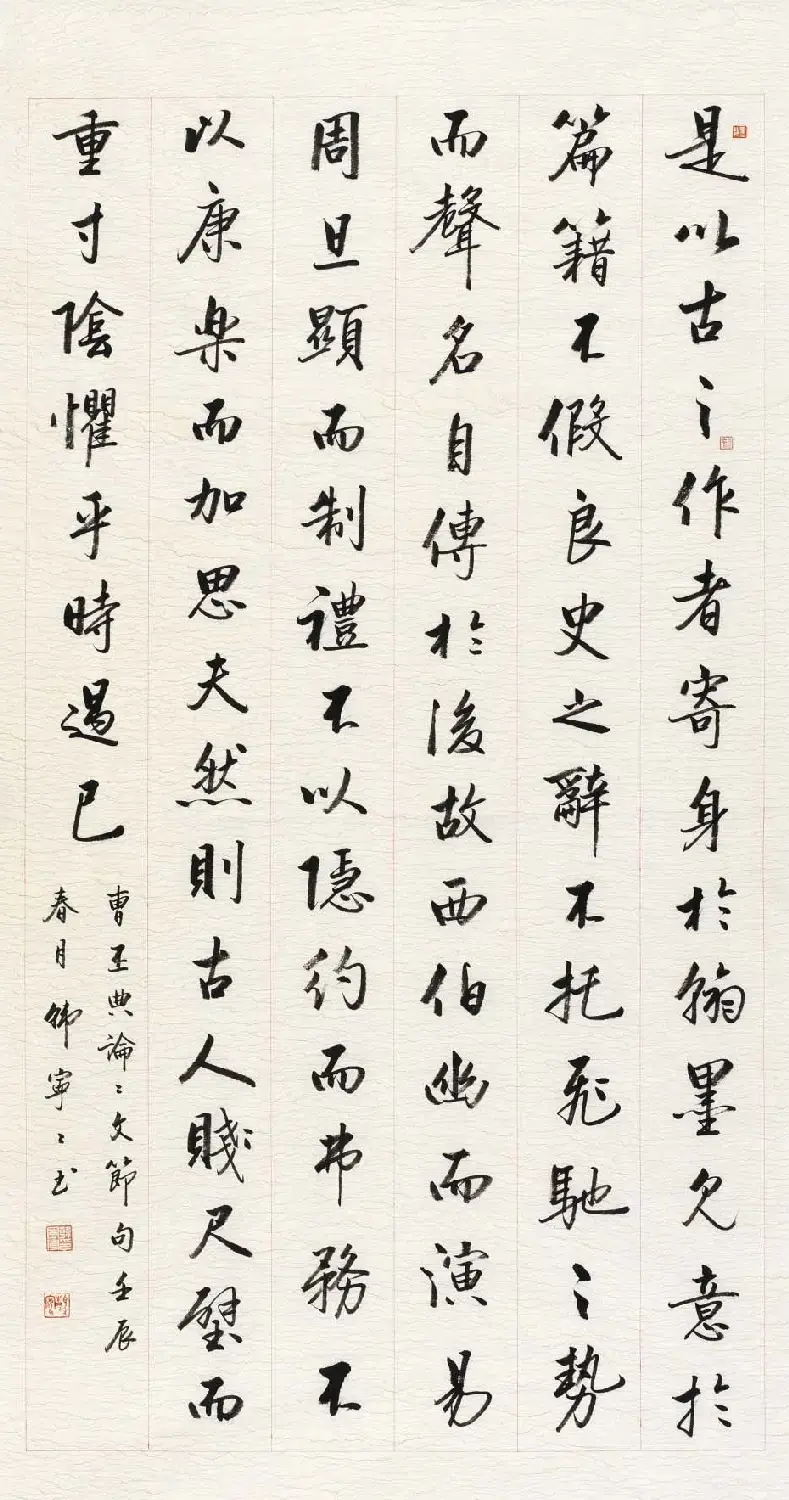 是以古之作者寄身於翰墨見意於
篇籍不假良史之辭不托飛馳之勢
而聲名自傳於後故西伯幽而演易
周旦顯而制禮不以隱約而弗務不
以康樂而加思夫然則古人賤尺璧而
重寸陰懼乎時過已
曹丕典論〻文節句壬辰
春月韓寧〻书